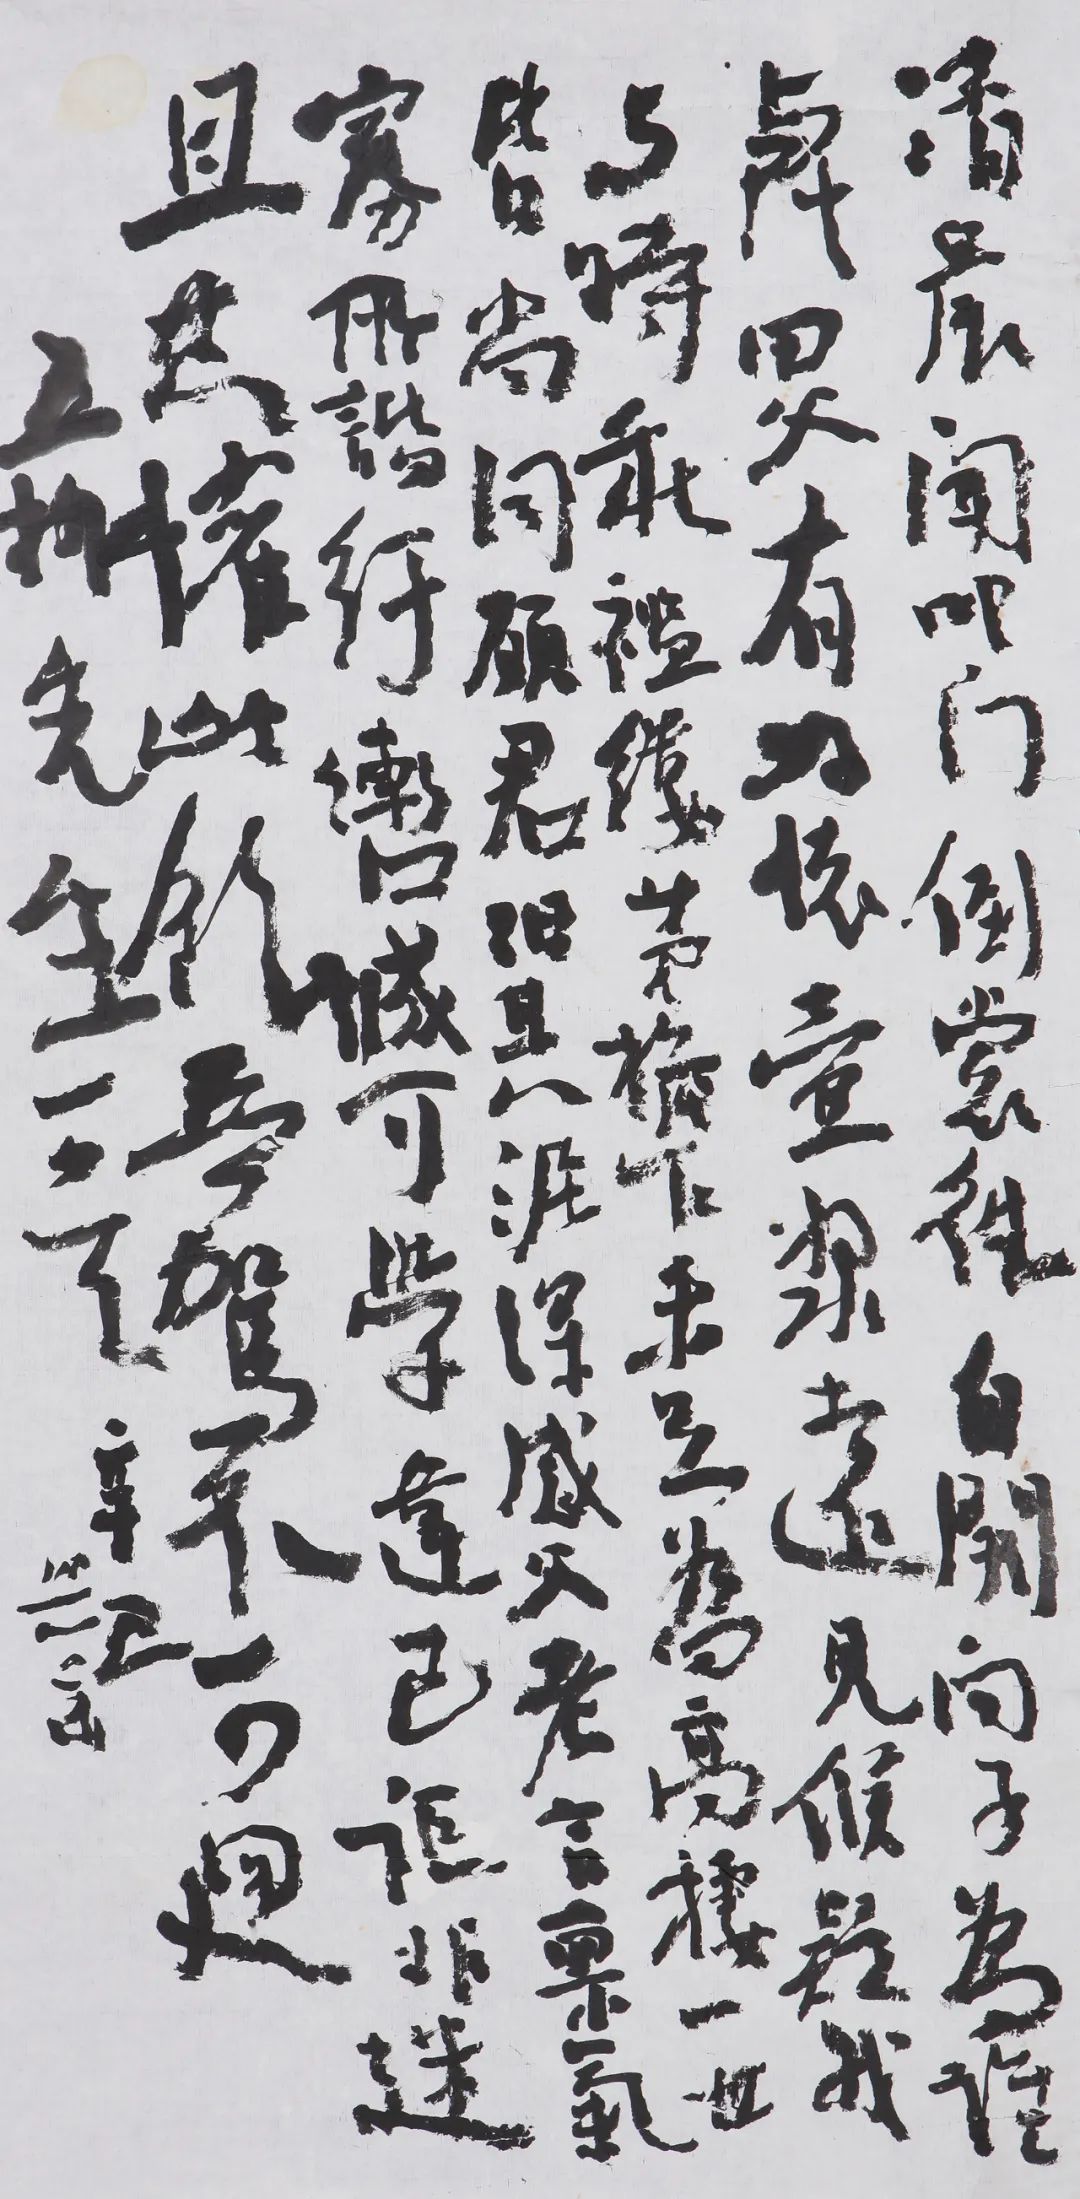 清晨聞叩门倒裳往自開问子為誰
歟田父有好懷壺漿遠見候疑我
与時乖襤縷茅檐下未足為高棲一世
皆尚同願君汩其泥深感父老言禀氣
寡所諧紆轡誠可學違己詎非迷
且共懽此飲吾駕不可迴
五柳先生
辛巳